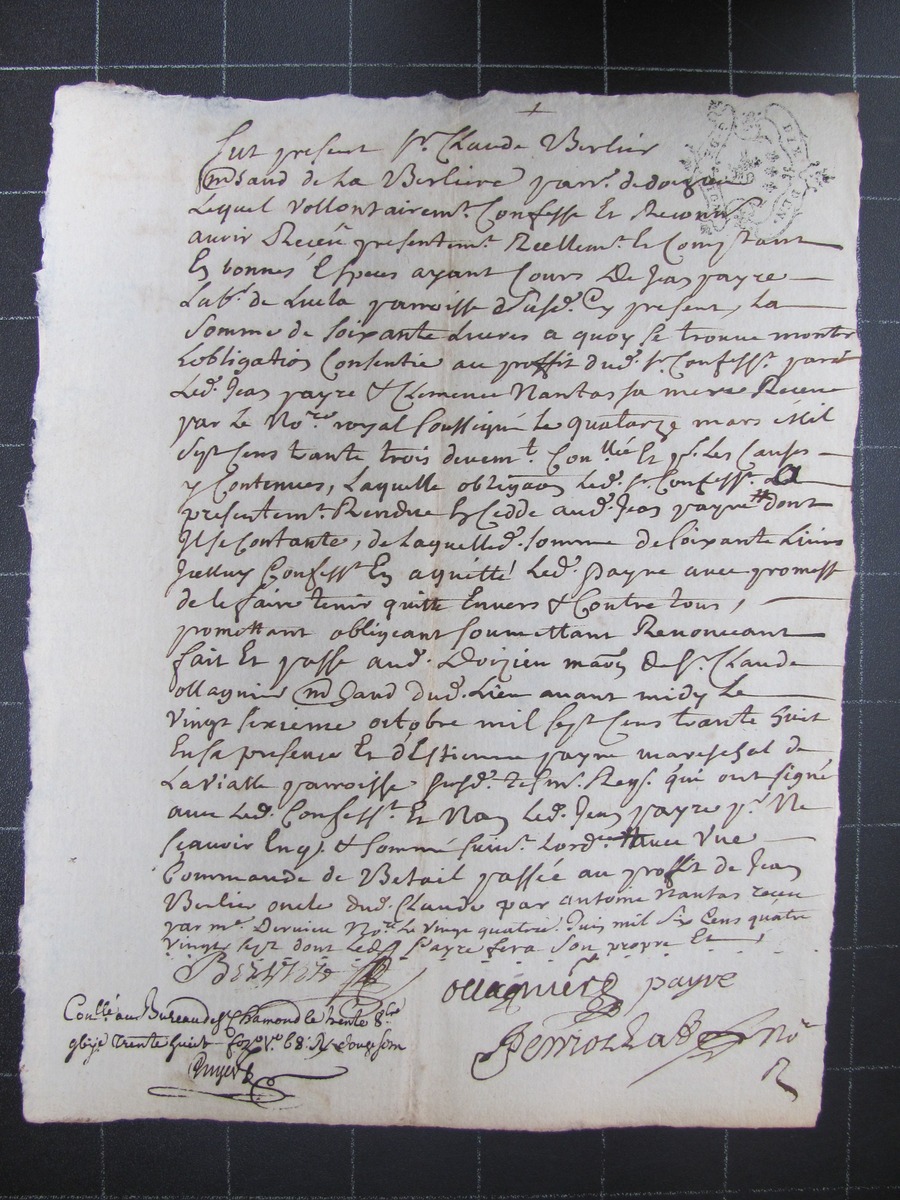 Fut present Sr. Claude Berlier
mchand de La Berliere parr. de doizieu
Lequel vollontairemt. Confesse Et Reconnoit
avoir Receu presentemt. Reellemt. Et Comptant
En bonnes Especes ayant Cours De Jean payre
Labr. de paroisse susd. Cy present, La
Somme de Soixante Livres a quoy se trouve monter
Lobligation Consentie au proffit dud. sr. Confesst. par
Led. Jean payre & Clemence Nantas sa mere Receue
par Le Nore. royal soussigné Le quatorze mars Mil
Sept Cens trante trois devemt. Conllée Et pr. Les Causes
y Contenues, Laquelle obligaon Led. sr. Confesst. a
presentemt. Rendue Et Cedde aud. Jean payre # dont
Il se Contante, de Laquelle d. somme de soixante Livres
Icelluy Confesst. En a quitté Led. payre avec promesse
de le faire tenir quitte Envers & Contre tous,
promettant obligeant soumettant Renonceant
fait Et passé aud. Doizieu maon de sr. Claude
ollagnier mchand dud. Lieu avant midy Le
vingt sixieme octobre mil sept Cens trante huit
En sa presence Et d'Estienne payre mareschal de
La vialle parroisse susd. tesm. Reqs. qui ont signé
avec Led. Confesst. Et Non Led. Jean payre pr. Ne
sçavoir Enq. & sommé suivt. Lord. # avec Une
Commande de Betail passée au proffit de Jean
Berlier oncle dud. Claude par antoine Nantas receu
par me. Dervieu Nore. Le vingt quatre. Juin mil six Cens quatre
vingt sept dont Led. payre fera son propre Et
Berlier
ollagnier payre
Conllé au Bureau de St Chamond le trente 8bre
trente huit fo. vo. 68. R. douze sols
nore